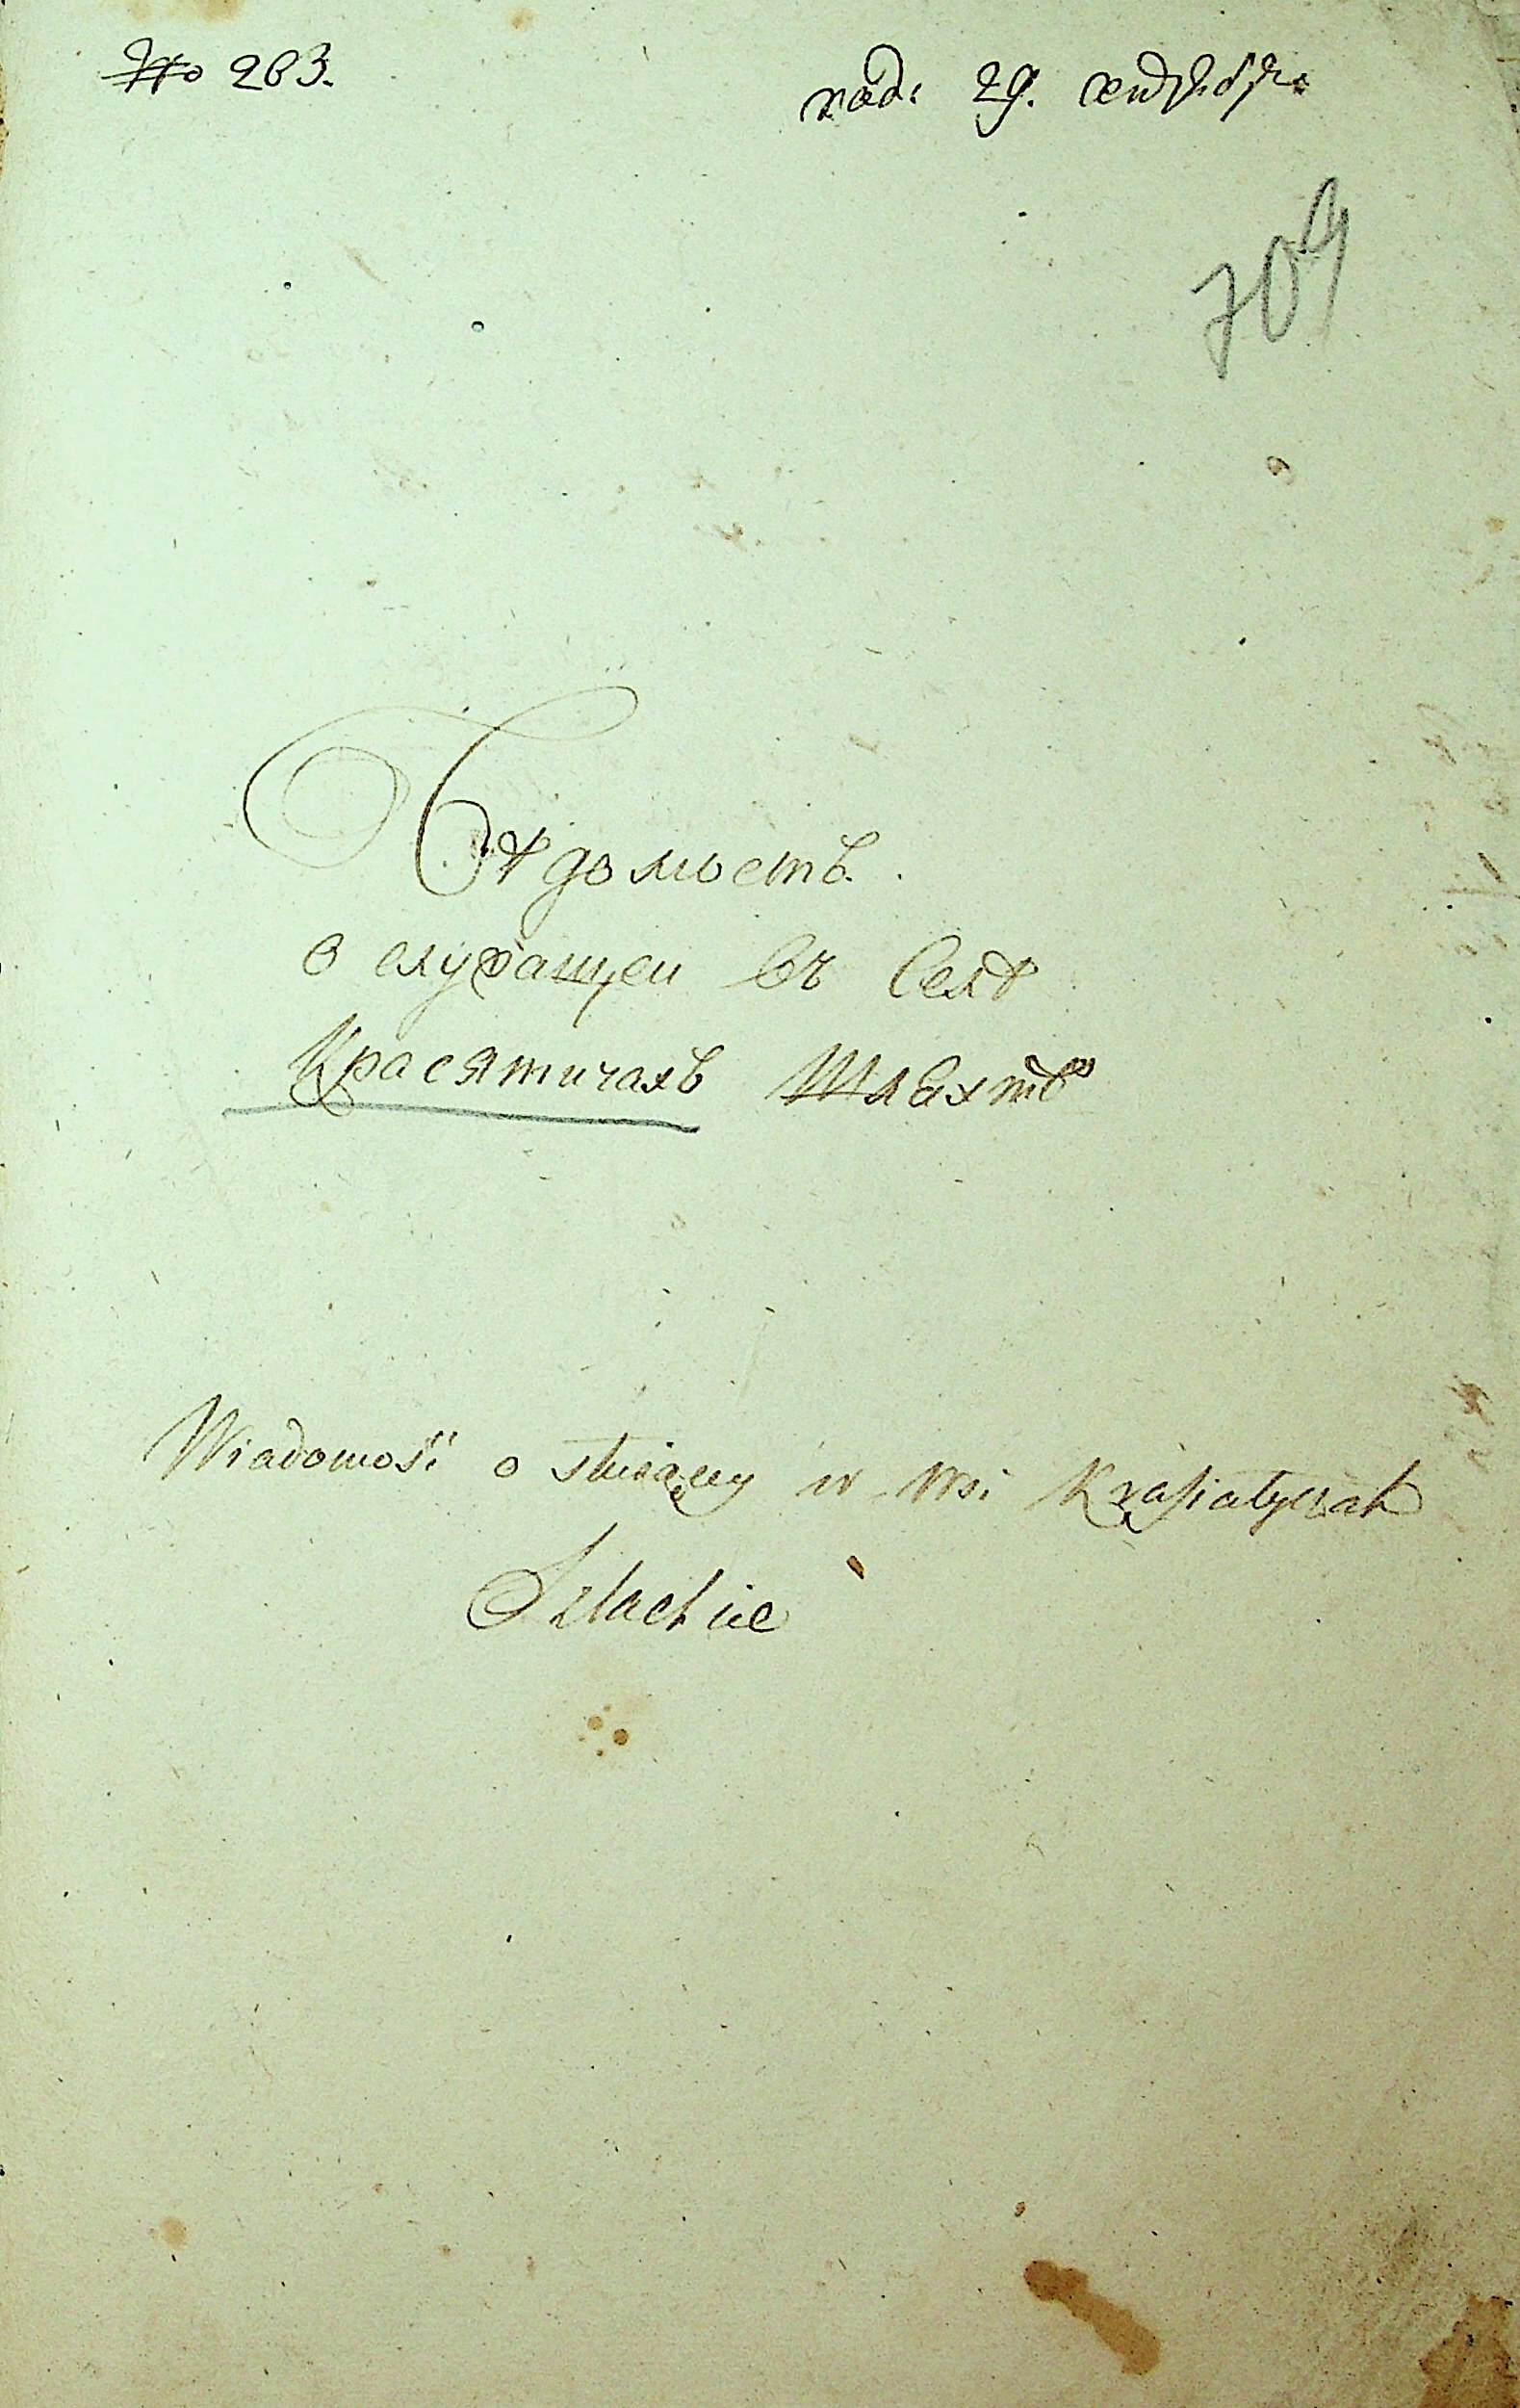 № 263.
29.
709
Вѣдомость
о служащеи въ Селѣ
Красятичахъ Шляхтѣ
Wiadomość o służącey w Wsi Krasiatyczah
Szlachcie